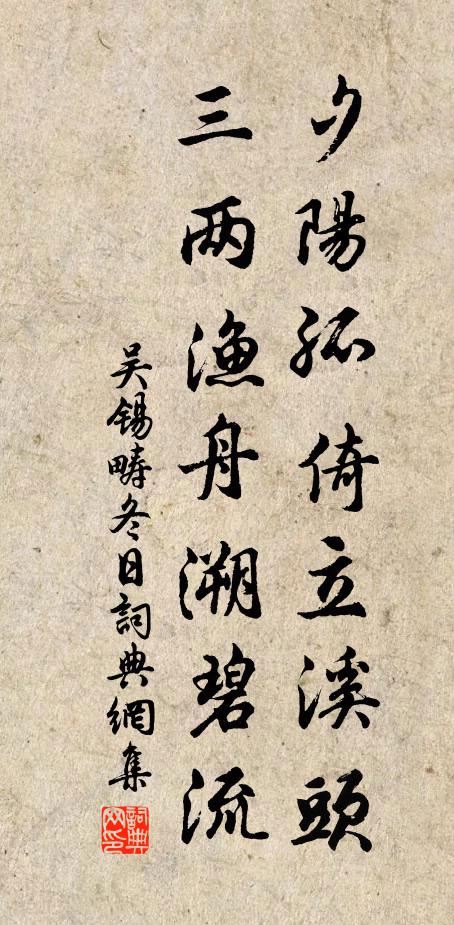 夕陽孤倚立溪頭
三两漁舟溯碧流
吴锡畴冬日詞典網集
詞典网印